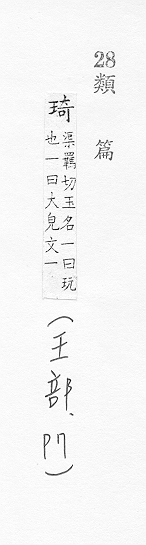 28 類篇
琦 渠羈切玉名一曰玩
也一曰大皃文一
(王部、P7)